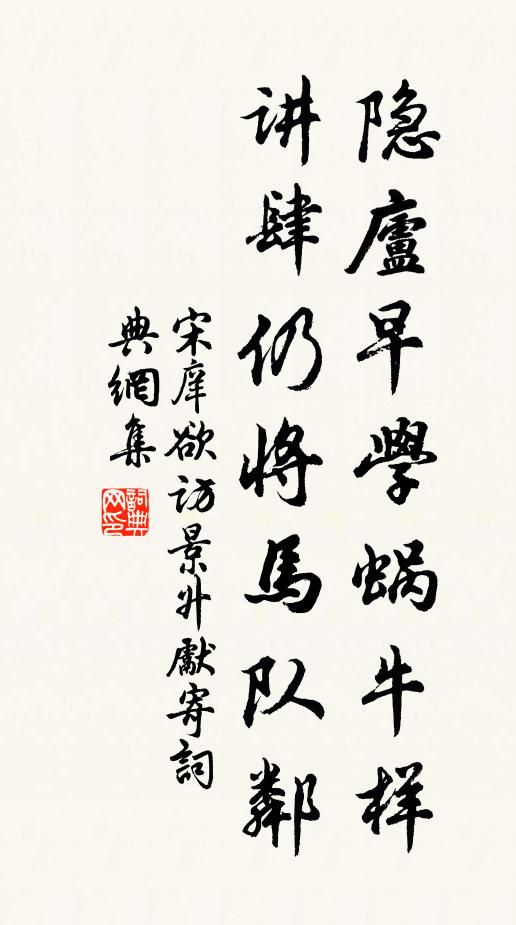 隐廬早學蝸牛样
讲肆仍将馬队鄰
宋庠欲访景外獻寄詞
典網集
詞典网印